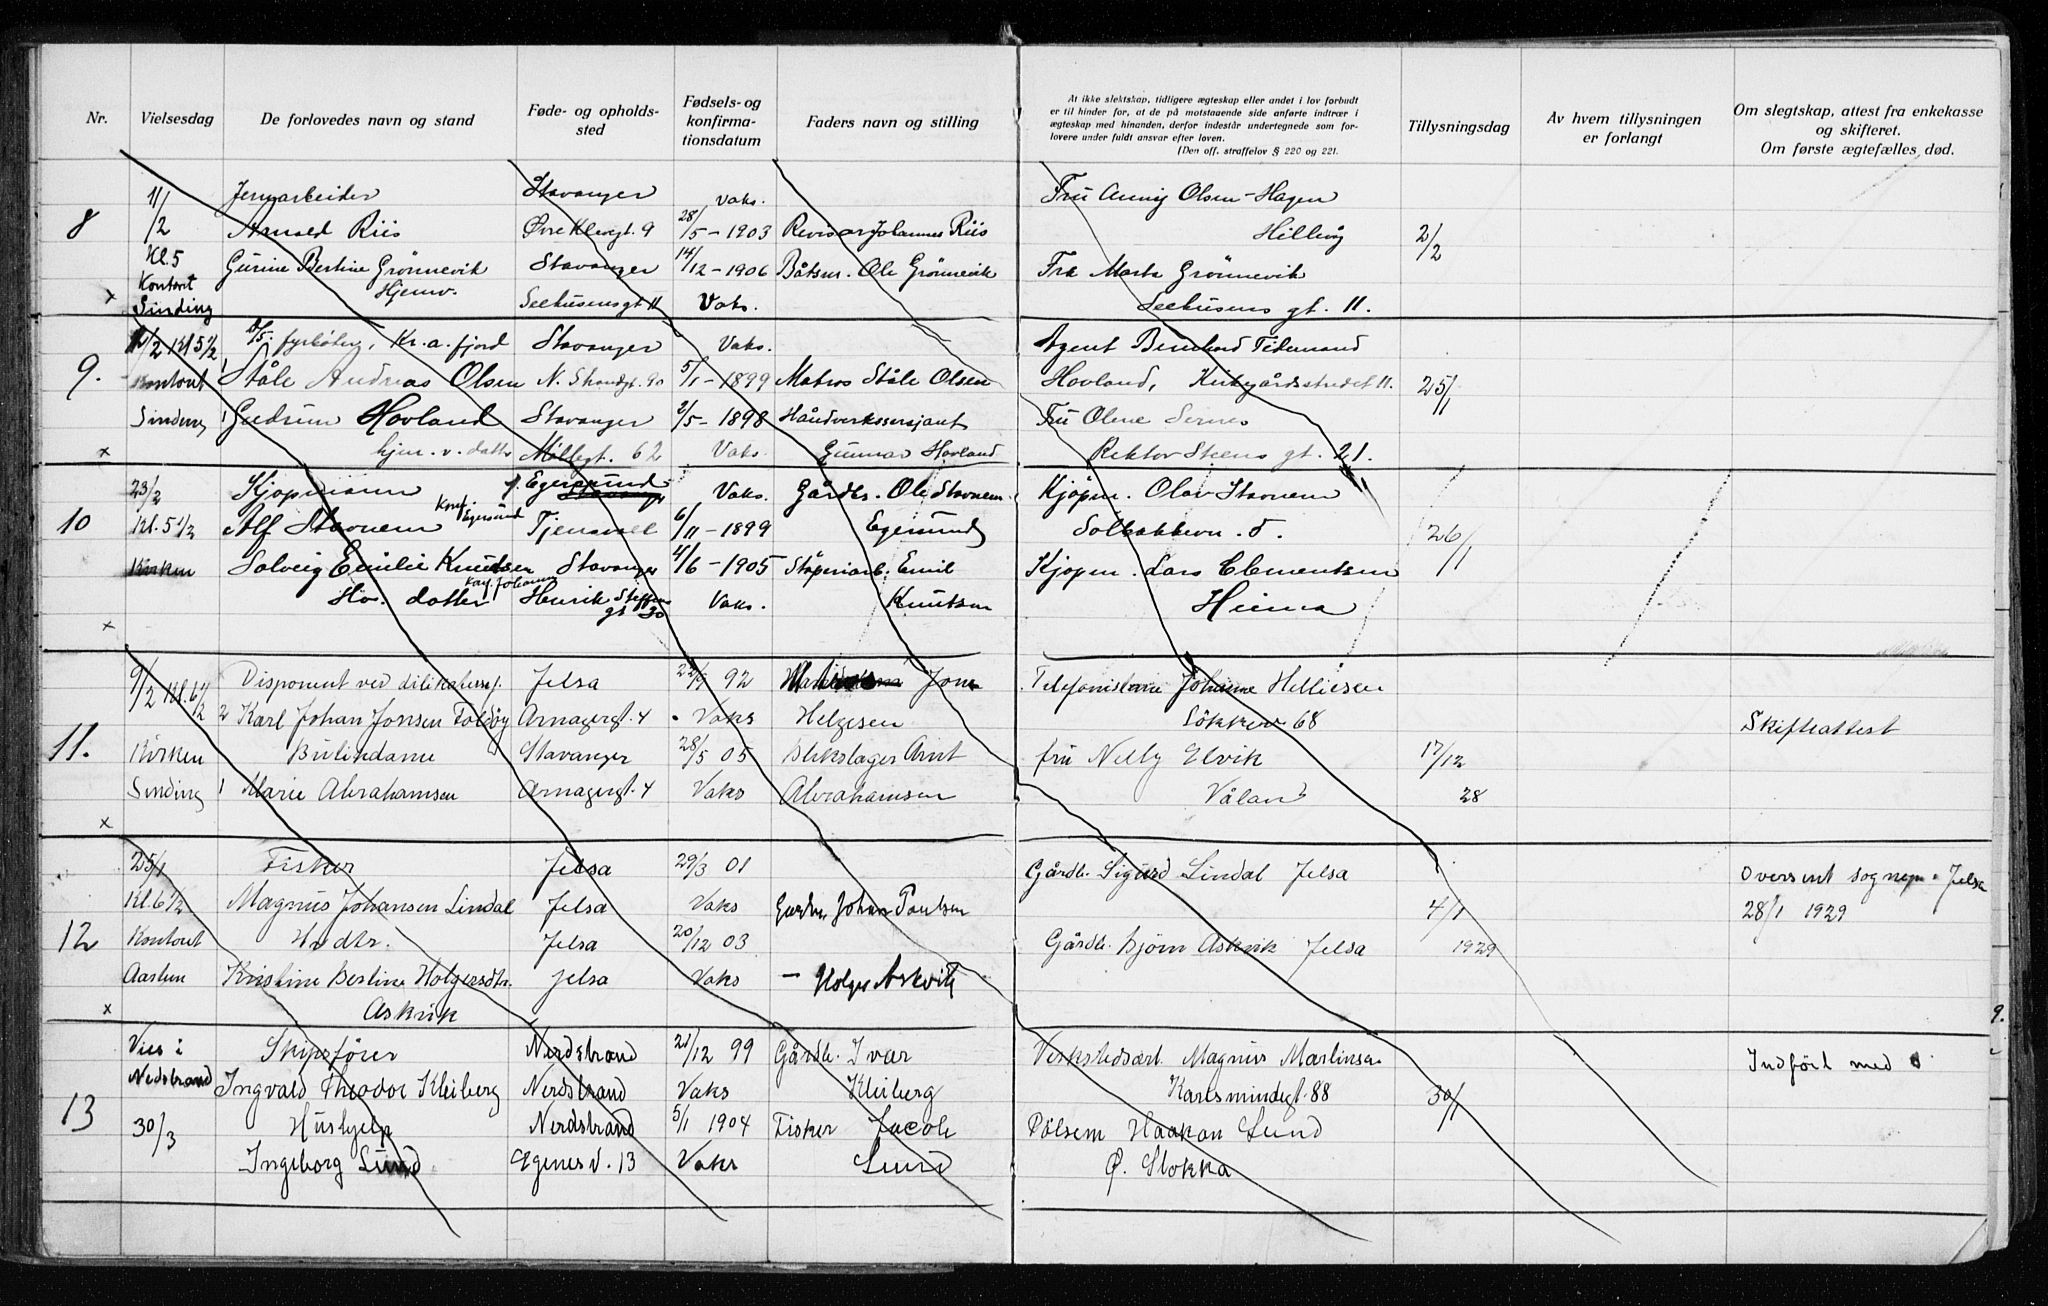 Nr. Vielsesdag De forlovedes navn og stand Føde- og opholds-sted Fødsels- og konfirma-tionsdatum Faders navn og stilling At ikke slektskap, tidligere ægteskap eller andet i lov forbudt er til hinder for, at de på motstaaende side anførte indtrær i ægteskap med hinanden, derfor indestår undertegnede som for-lovere under fuldt ansvar efter loven. (Den off. straffelov § 220 og 221. Tillysningsdag Av hvem tillysningen er forlangt Om slegtskap, attest fra enkekasse og skifteret. Om første ægtefælles død.
1/ Jernarbeider Stavanger Vaks. Fru Anny Olsen-Hagen
8 /2 Arnold Riis Øvre Klevgt. 9 28/5 - 1903 Revisor Johannes Riis Hillevåg 2/2
Kl. 5 Gurine Bertine Grønnevik Stavanger 14/12 - 1906 Båtsm. Ole Grønnevik Fra Marta Grønnevik
Kontoret Hjemv. Seehusensgt. 11 Vaks. Seehusens gt. 11.
x Sinding
/2 Kl 5 1/2 fyrbøter, Kr.a.fjord Stavanger Vaks. Agent Bernhard Tidemand
9. Kontoret Ståle Andreas Olsen N. Strandgt. 90 5/1 - 1899 Matros Ståle Olsen Hovland, Kirkegårdsstredet 11. 25/1
Sinding 1 Gudrun Hovland Stavanger 2/5 - 1898 Håndverkssersjant Fru Olene Sernes
x hjem. v. datter Møllegt. 62 Vaks. Gunnar Hovland Rektor Steens gt. 21.
23/2 Kjøpmann f. Egersund Stavanger Vaks. Gårdbr. Ole Stavnem Kjøpm. Olav Stavnem
10 Kl. 5 1/2 Alf Stavnem Konf. Egersund Tjensvoll 6/11 - 1899 Egersund Solbakkevn. 5. 26/1
Kirken Solveig Emilie Knutsen Stavanger 4/6 - 1905 Støperiarb. Emil Kjøpm. Lars Clementsen
Hos. datter Henrik Steffens gt 30 Vaks. Knutsen Hinna
x
9/2 Kl. 6 1/2 Disponent ved Jelsa 22/9 92 Jon Telefonistinne Johanne Helliesen
2 Karl Johan Jonsen Foldøy Arnagergt. 4 Vaks Helgesen Løkkev. 68 Skifteattest
11. Kirken Butikdame Stavanger 28/5 05 Blikslager Arnt fru Nelly Elvik 17/12
Sinding 1 Marie Abrahamsen Arnagergt. 4 Vaks Abrahamsen Våland 28
x
25/1 Fisker Jelsa 29/3 01 Gårdb. Sigurd Lindal Jelsa Oversent sognepr. Jelsa
Kl. 6 1/2 Magnus Johansen Lindal Jelsa Vaks Gardbr. Johan Paulsen 4/1 28/1 1929
12 Kontoret Husdtr. Jelsa 20/12 03 Gårdb. Bjørn Askvik Jelsa 1929
Aaslun Kristine Bertine Holgersdtr. Jelsa Vaks — Holger Askvik
x Askvik
9.
Vies i Skipsfører Nerdstrand 21/12 99 Gårdb. Ivar Verkstedsarb. Magnus Martinsen Indført med
Nedstrand Ingvald Theodor Kleiberg Nerdstrand Vaks Kleiberg Karlsmindegt. 88 30/1
13 30/3 Hushjelp Nerdstrand 5/1 1904 Fisker Jacob Pølsem Haakon Lund
Ingeborg Lund Egenes v. 13 Vaks Lund Ø. Stokka